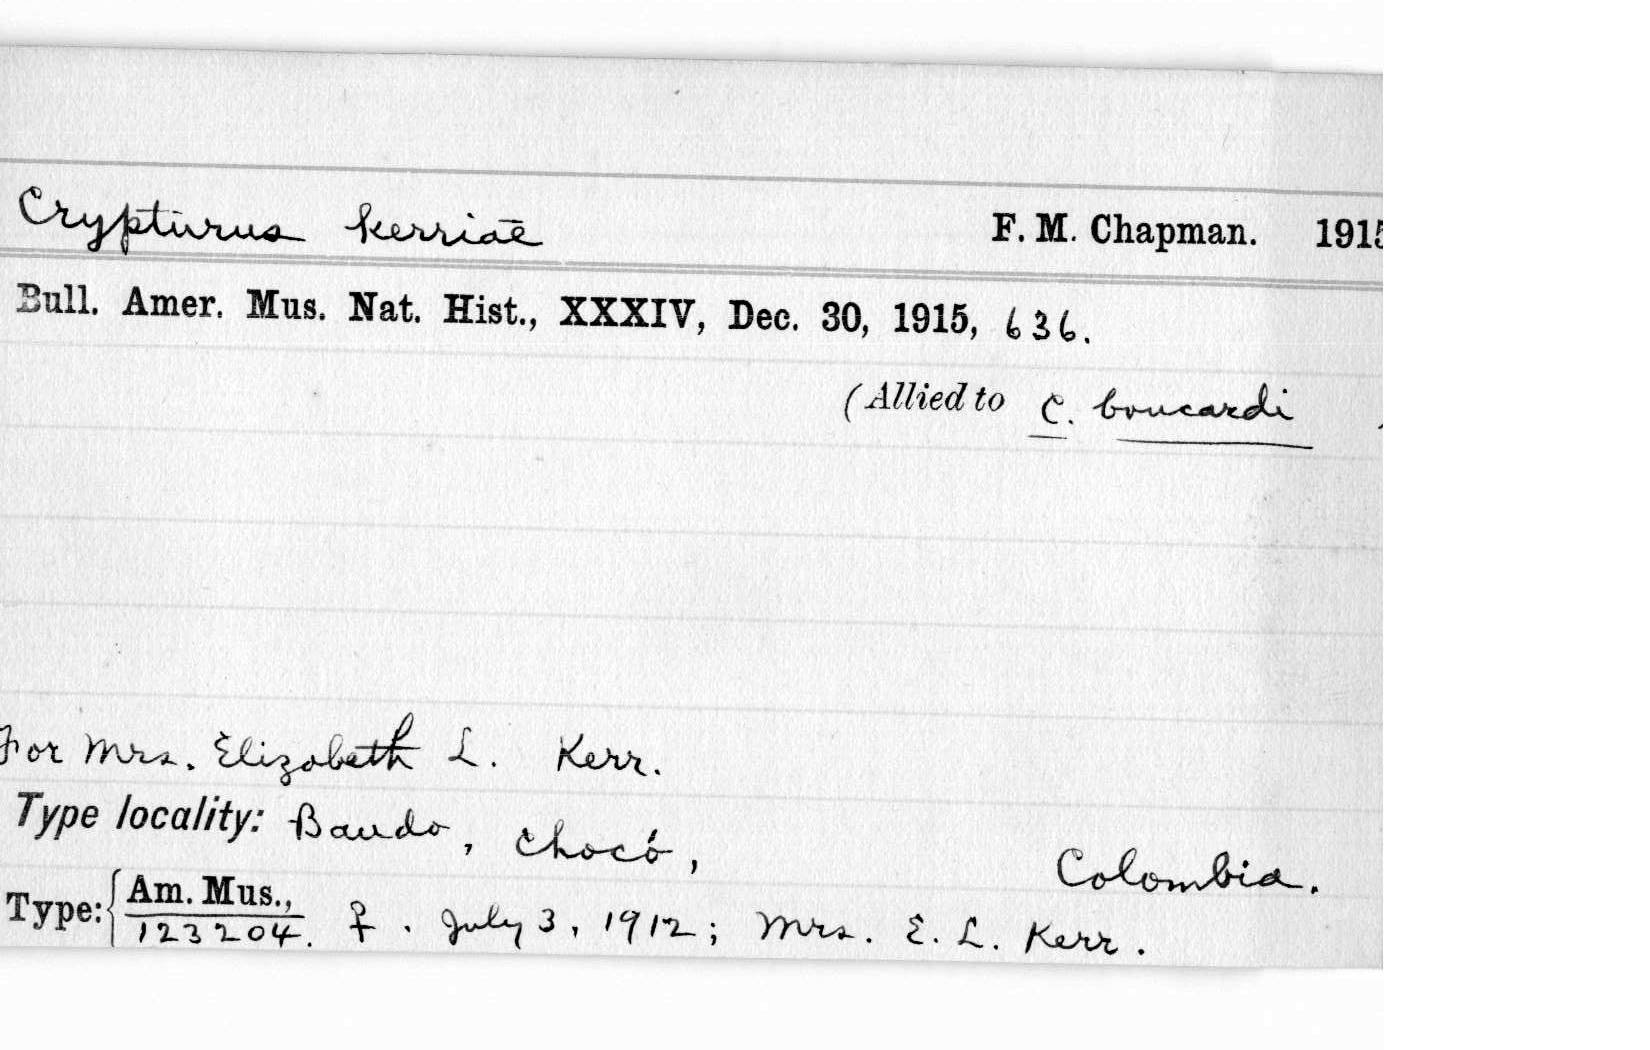 Crypturus kerriae F. M. Chapman. 1915
Bull. Amer. Mus. Nat. Hist., XXXIV, Dec. 30, 1915, 636.
(Allied to C. boucardi )
For Mrs. Elizabeth L. Kerr.
Type locality: Baudo, Chocó, Colombia.
Type: { Am. Mus.,
123204. ♀. July 3, 1912; Mrs. E. L. Kerr.